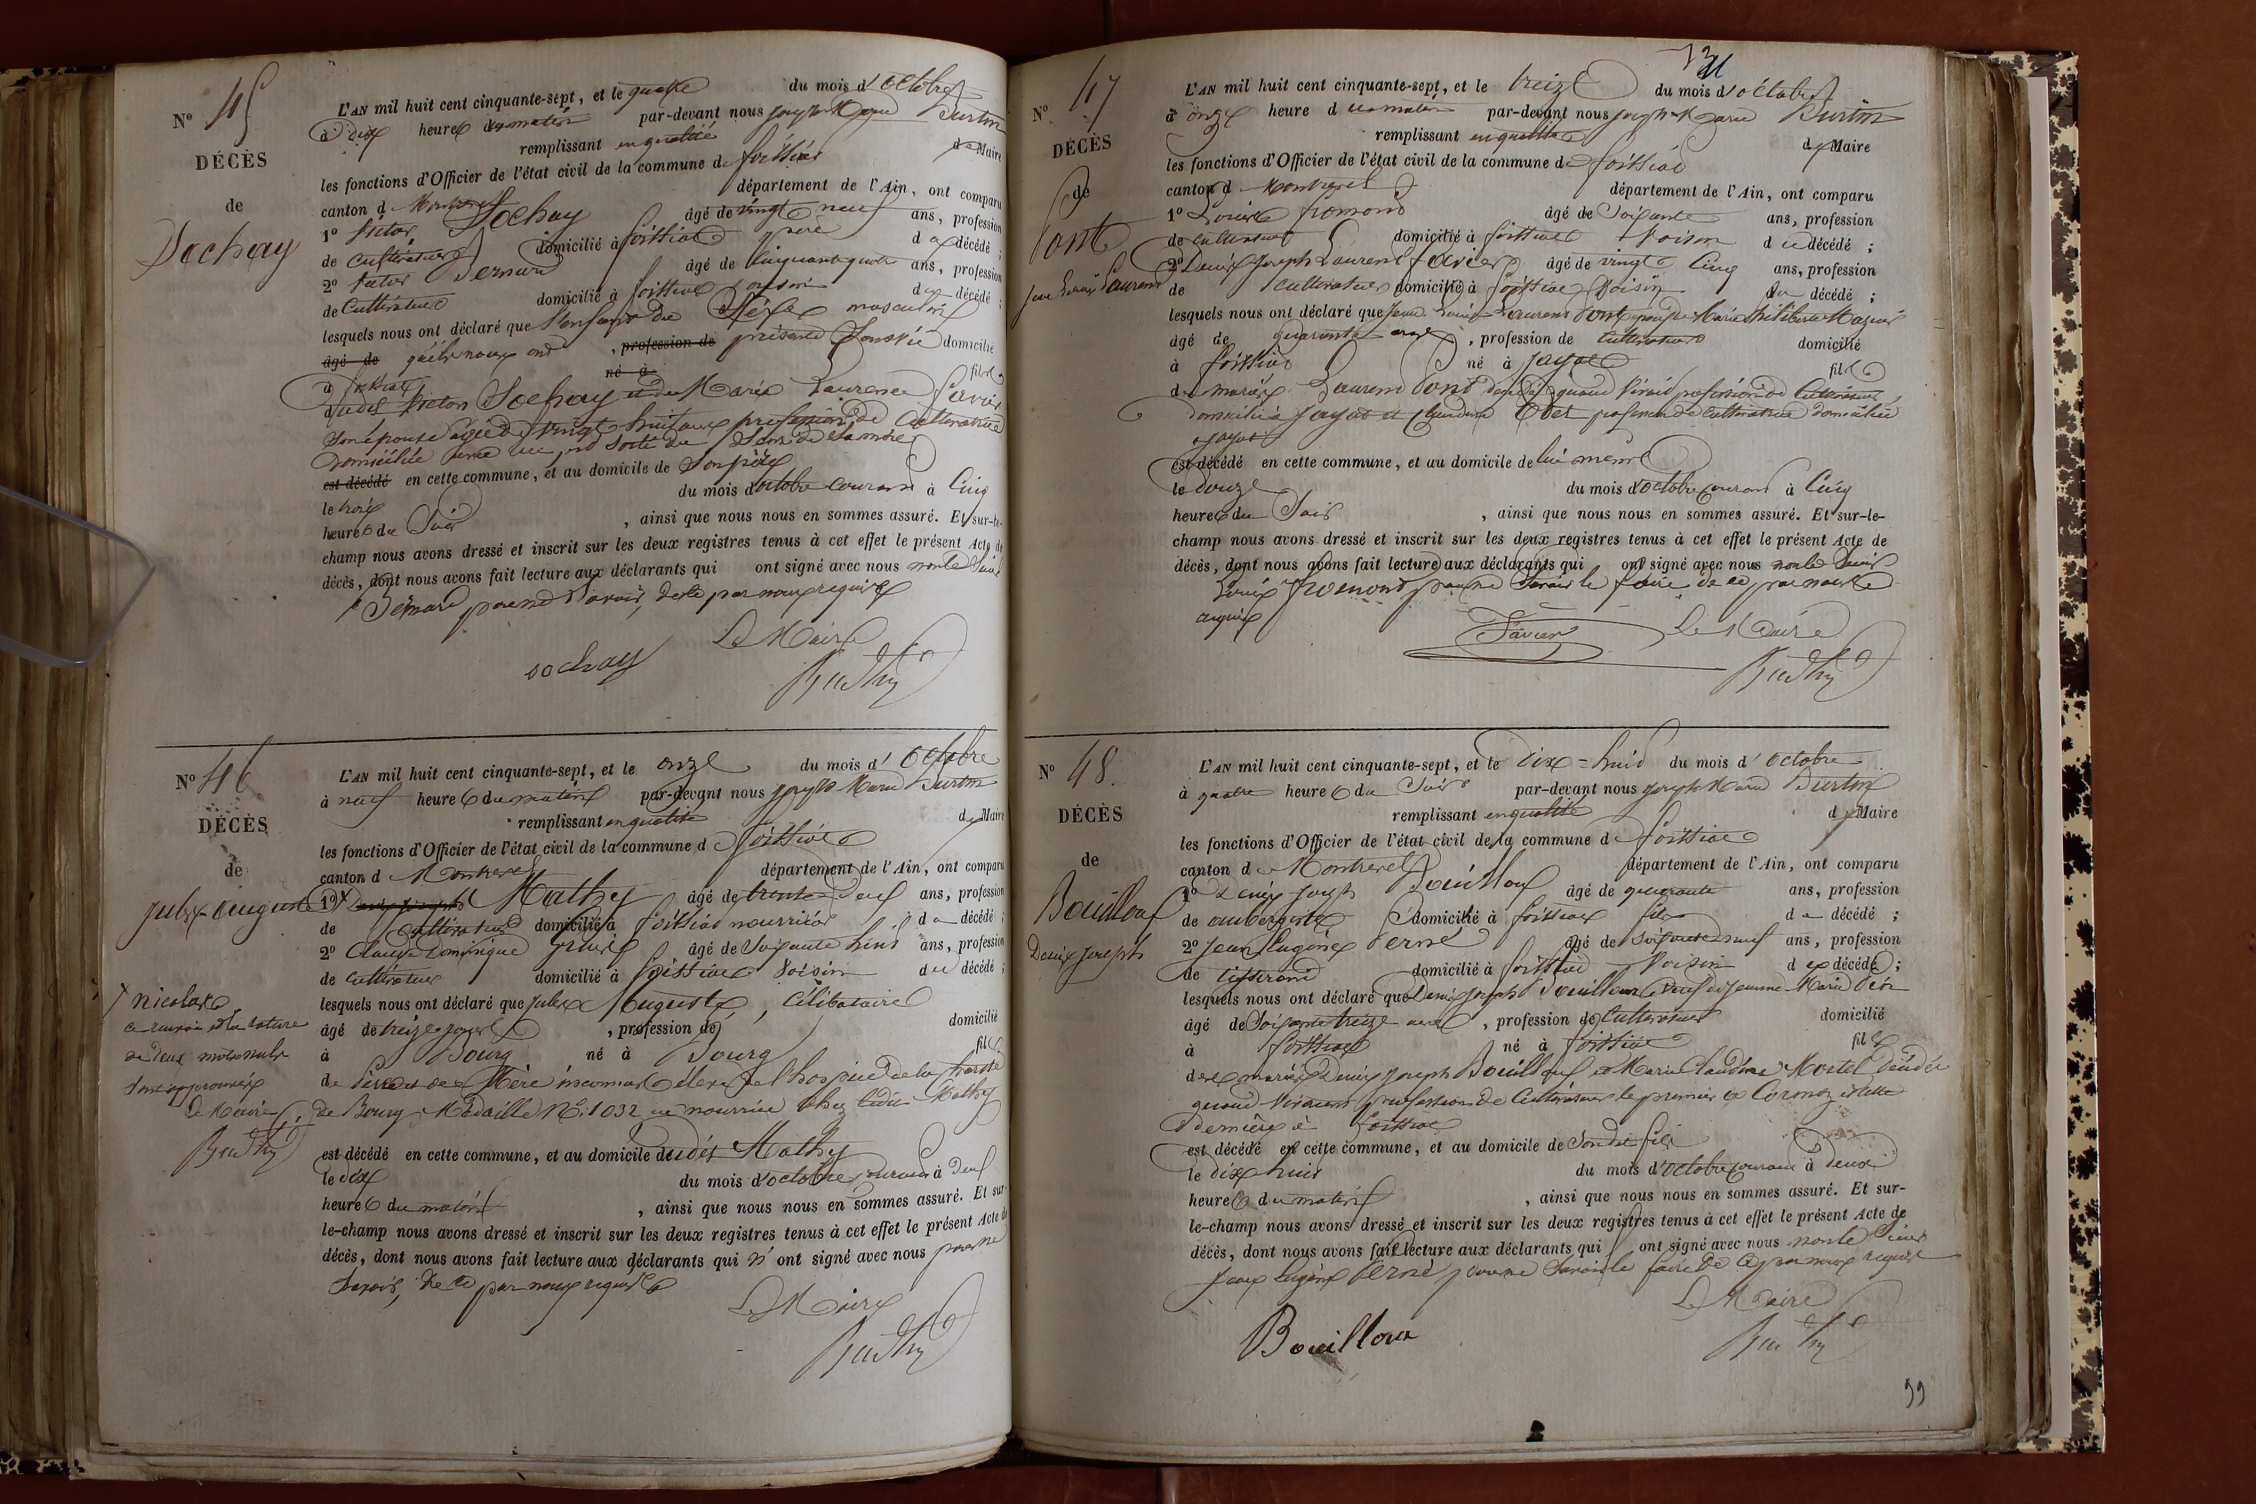 N° 45
DÉCÈS
de
Sochay
L'AN mil huit cent cinquante-sept, et le quatre du mois d'octobre
à dix heures du matin par-devant nous joseph Marie Burtin
remplissant en qualité de Maire
les fonctions d'Officier de l'état civil de la commune de foissiat
canton d Montrevel département de l'Ain, ont comparu
1° Victor Sochay âgé de vingt neuf ans, profession
de cultivateur domicilié à foissiat père du décédé ;
2° Bernard âgé de cinquante quatre ans, profession
de Cultivateur domicilié à foissiat voisin du décédé ;
lesquels nous ont déclaré que l'enfant du Sexe masculin
âgé de qu'ils nous ont , profession de présenté Sans vie domicilié
né à
à foissiat fils
dudit Victor Sochay et de Marie Laurence favier
Son épouse âgée de vingt huit ans profession de Cultivatrice
Domiciliée avec lui, est sorti du Sein de sa mère
est décédé en cette commune, et au domicile de Son père
le trois du mois d'octobre courant à Cinq
heures du Soir , ainsi que nous nous en sommes assuré. Et sur-le-
champ nous avons dressé et inscrit sur les deux registres tenus à cet effet le présent Acte de
décès, dont nous avons fait lecture aux déclarants qui ont signé avec nous non le Sieur
Bernard pour ne Savoir, de ce par nous requis
Le Maire
sochay Burtin
N° 46
DÉCÈS
de
jules auguste
L'AN mil huit cent cinquante-sept, et le onze du mois d'octobre
à neuf heures du matin par-devant nous joseph Marie Burtin
remplissant en qualité de Maire
les fonctions d'Officier de l'état civil de la commune d foissiat
canton d Montrevel département de l'Ain, ont comparu
1° x Denis joseph Mathy âgé de trente Deux ans, profession
de Cultivateur domicilié à foissiat nourricier du décédé ;
2° Claude Dominique âgé de Soixante huit ans, profession
de cultivateur domicilié à foissiat voisin du décédé ;
x Nicolas
ce renvoi et la rature
de deux mots nuls
Sont approuvés
Le Maire
Burtin
lesquels nous ont déclaré que jules Auguste, Célibataire
âgé de treize jours , profession de domicilié
à Bourg né à Bourg fils
de Père et de Mère inconnus élève de l'hospice de la Charité
de Bourg Médaille N° 1032 en nourrice chez ledit Mathy
est décédé en cette commune, et au domicile dudit Mathy
le dix du mois d'octobre courant à Deux
heures du matin , ainsi que nous nous en sommes assuré. Et sur-
le-champ nous avons dressé et inscrit sur les deux registres tenus à cet effet le présent Acte de
décès, dont nous avons fait lecture aux déclarants qui n'ont signé avec nous pour ne
Savoir, de ce par nous requis
Le Maire
Burtin
N° 47
DÉCÈS
de
Pont
jean Louis Laurent
L'AN mil huit cent cinquante-sept, et le treize du mois d'octobre
à onze heure d u matin par-devant nous joseph Marie Burtin
remplissant en qualité de Maire
les fonctions d'Officier de l'état civil de la commune de foissiat
canton d Montrevel département de l'Ain, ont comparu
1° Louis fromont âgé de Soixante ans, profession
de cultivateur domicilié à foissiat Voisin du décédé ;
2° Denis joseph Laurent favier âgé de vingt Cinq ans, profession
de cultivateur domicilié à foissiat Voisin du décédé ;
lesquels nous ont déclaré que jean Louis Laurent Pont époux de Marie Philiberte Mazuir
âgé de quarante onze , profession de Cultivateur domicilié
à foissiat né à jayat fils
des mariés Laurent Pont décédé quand vivait profession de Cultivateur
domicilié à jayat et Claudine profession de Cultivatrice domiciliée
à jayat
est décédé en cette commune, et au domicile de lui même
le douze du mois d'octobre courant à Cinq
heures du Soir , ainsi que nous nous en sommes assuré. Et sur-le-
champ nous avons dressé et inscrit sur les deux registres tenus à cet effet le présent Acte de
décès, dont nous avons fait lecture aux déclarants qui ont signé avec nous non le Sieur
Louis fromont pour ne Savoir le faire de ce par nous
requis
Favier Le Maire
Burtin
N° 48
DÉCÈS
de
Bouilloux
Denis joseph
L'AN mil huit cent cinquante-sept, et le Dix=huit du mois d'octobre
à quatre heures du Soir par-devant nous joseph Marie Burtin
remplissant en qualité de Maire
les fonctions d'Officier de l'état civil de la commune de foissiat
canton d Montrevel département de l'Ain, ont comparu
1° Denis joseph Bouilloux âgé de quarante ans, profession
de aubergiste domicilié à foissiat fils du décédé ;
2° jean Eugène Perné âgé de Soixante neuf ans, profession
de tisserand domicilié à foissiat Voisin du décédé ;
lesquels nous ont déclaré que Denis joseph Bouilloux veuf de jeanne Marie
âgé de Soixante treize ans , profession de Cultivateur domicilié
à foissiat né à foissiat fils
des mariés Denis joseph Bouilloux et Marie Claudine Mortel Décédés
quand vivaient profession de Cultivateurs le premier à Coronoz et cette
Dernière à foissiat
est décédé en cette commune, et au domicile de Son dit fils
le dix huit du mois d'octobre courant à Deux
heures du matin , ainsi que nous nous en sommes assuré. Et sur-
le-champ nous avons dressé et inscrit sur les deux registres tenus à cet effet le présent Acte de
décès, dont nous avons fait lecture aux déclarants qui ont signé avec nous non le Sieur
jean Eugène Perné pour ne Savoir le faire de ce par nous requis
Le Maire
Bouilloux Burtin